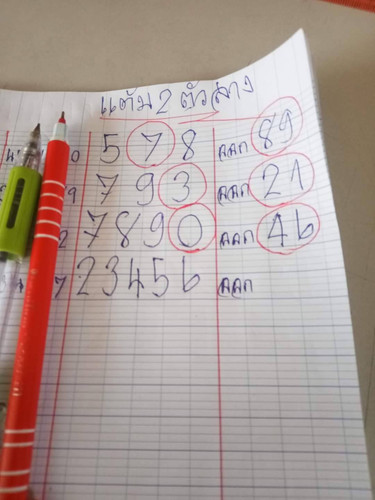 แต้ม 2 ตัวล่าง
0 5 7 8 ออก 89
9 7 9 3 ออก 21
2 7 8 9 0 ออก 46
7 2 3 4 5 6 ออก